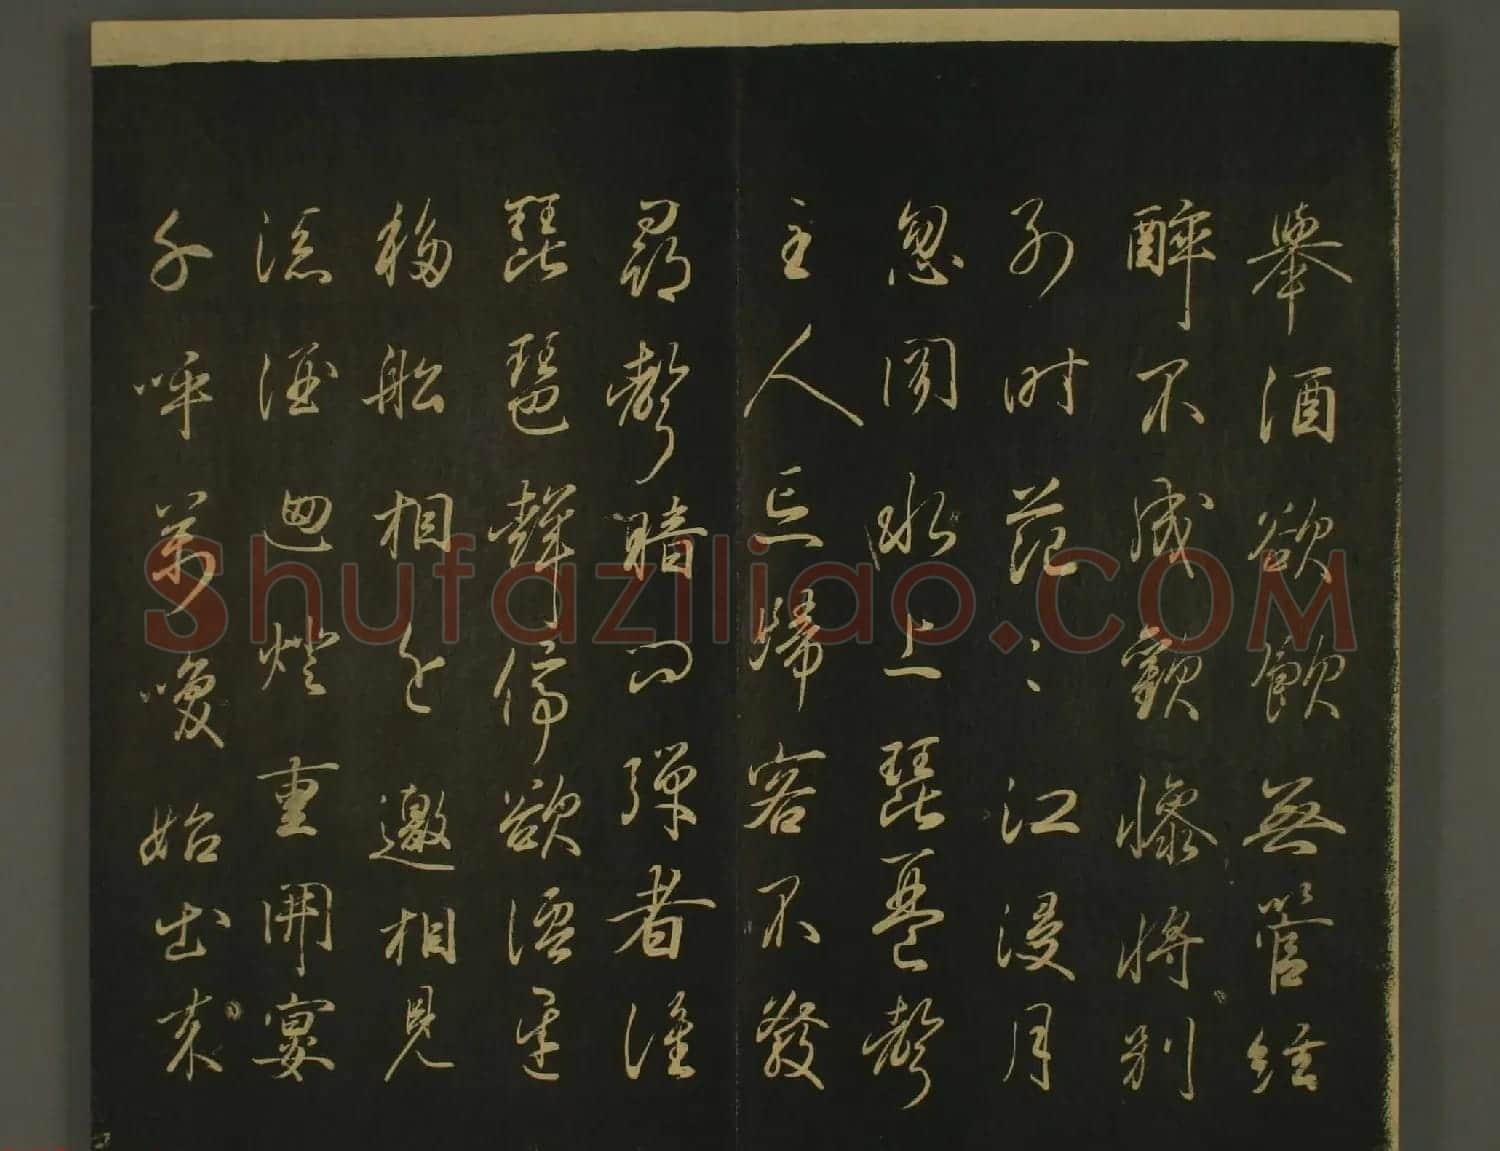 舉酒欲飲無管絃
醉不成歡慘將別
別時茫〻江浸月
忽聞水上琵琶聲
主人忘歸客不發
尋聲暗問彈者誰
琵琶聲停欲語遲
移船相近邀相見
添酒迴燈重開宴
千呼萬喚始出來
Shufaziliao.COM